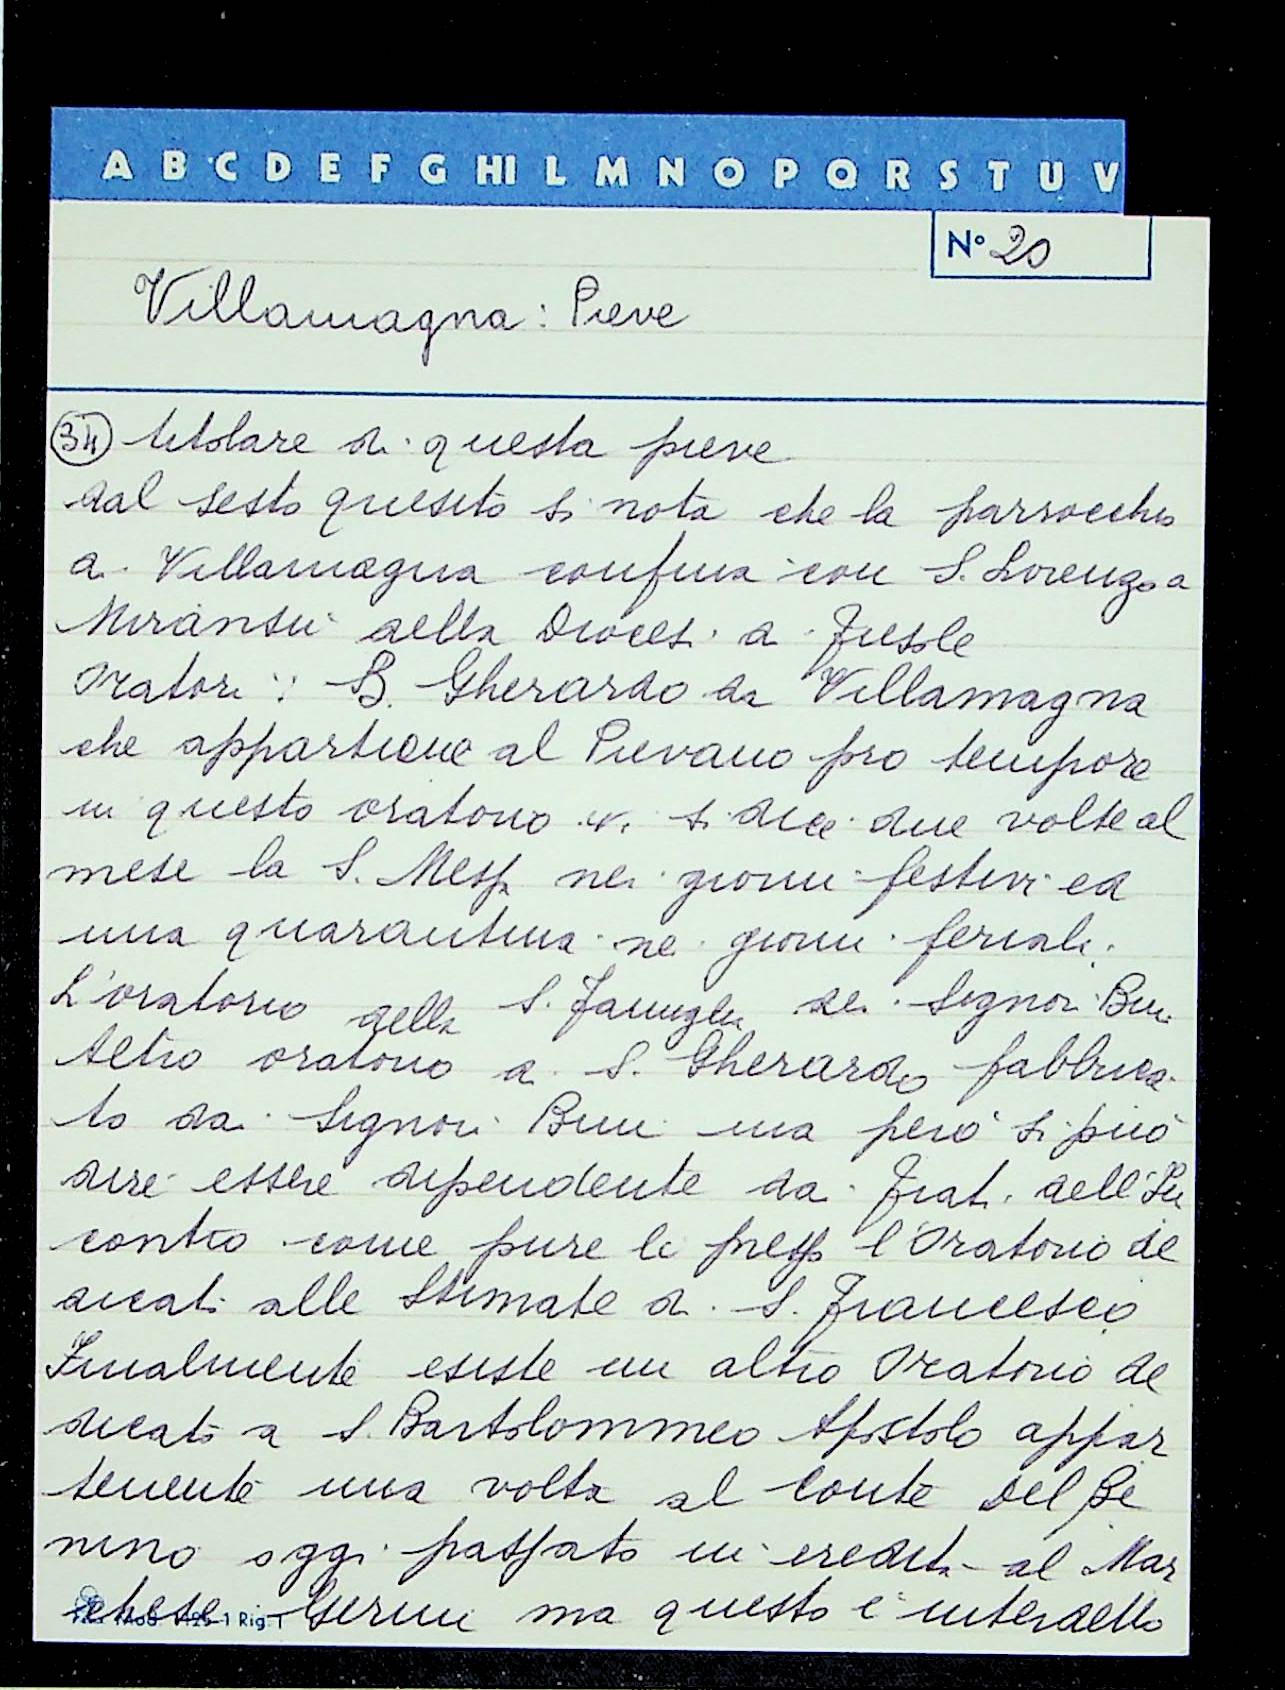 A B C D E F G HI L M N O P Q R S T U V
N° 20
Villamagna: Pieve
34 titolare di questa pieve
dal sesto quesito si nota che la parrocchia
di Villamagna confina con S. Lorenzo a
Miransù della Diocesi di Fiesole
Oratori: B. Gherardo da Villamagna
che appartiene al Pievano pro tempore
in questo oratorio vi si dice due volte al
mese la S. Messa nei giorni festivi ed
una quarantina nei giorni feriali.
L'oratorio della S. Famiglia dei Signori Bini
Altro oratorio di S. Gherardo fabbrica
to dai Signori Bini ma però si può
dire essere dipendente dai Frati dell'In
contro come pure lì presso l'Oratorio de
dicati alle Stimate di S. Francesco
Finalmente esiste un altro Oratorio de
dicato a S. Bartolommeo Apostolo appar
tenente una volta al Conte Del Be
nino oggi passato in eredità al Mar
chese Gerini ma questo è interdetto
1 Rig. 1